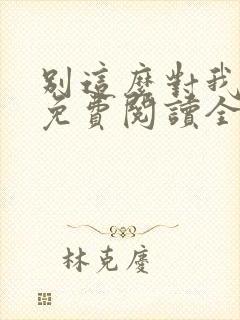 別這麼對我
免費閱讀全
林克慶